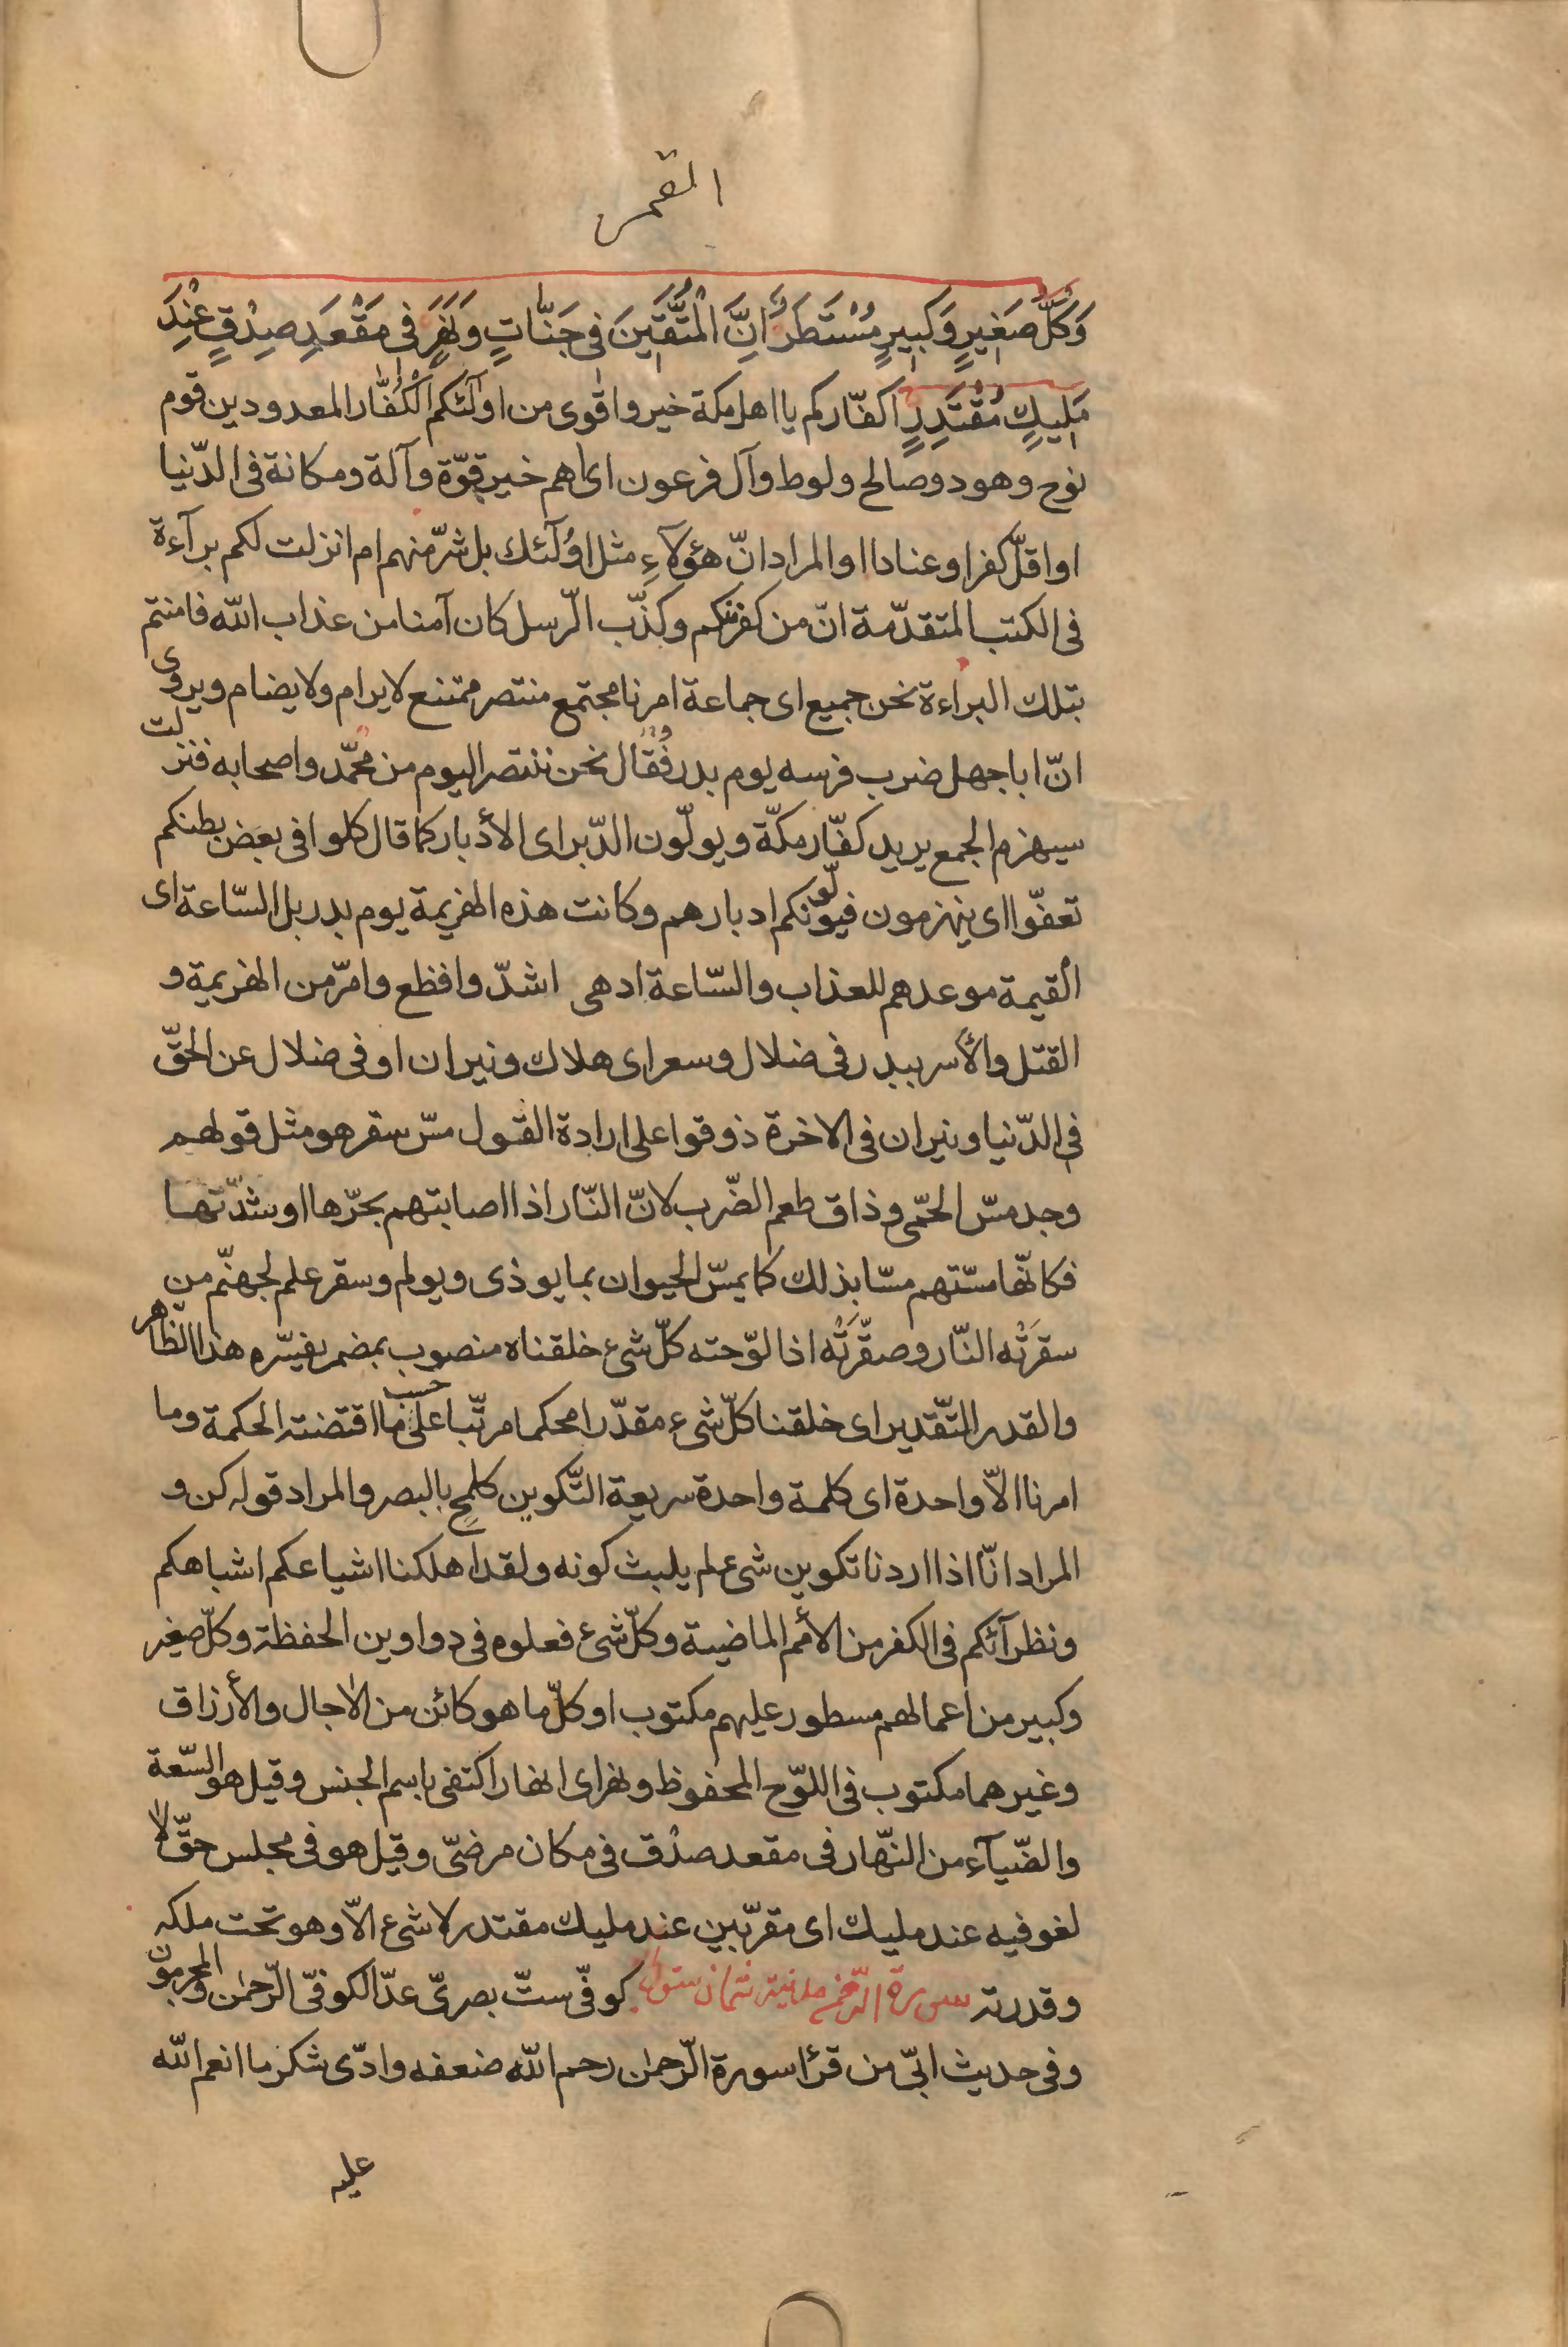 القمر
وَكُلُّ صَغِيرٍ وَكَبِيرٍ مُسْتَطَرٌ اِنَّ الْمُتَّقِينَ فِى جَنَّاتٍ وَنَهَرٍ فِى مَقْعَدِ صِدْقٍ عِنْدَ
مَلِيكٍ مُقْتَدِرٍ اكفّاركم يا اهل مكة خير واقوى من اولٓئكم الْكُفّار المعدودين قوم
نوح وهود وصالح ولوط وآل فرعون اى اهم خير قوّة وآلة ومكانة فى الدّنيا
او اقلّ كفرا وعنادا والمراد انّ هؤلآءِ مثل اولٓئك بل شرّ منهم ام انزلت لكم برآءة
فى الكتب المتقدّمة انّ من كفر منكم وكذّب الرّسل كان آمنا من عذاب الله فامنتم
بتلك البراءة نحن جميع اى جماعة امرنا مجتمع منتصر ممتنع لا يرام ولا يضام ويروى
انّ ابا جهل ضرب فرسه يوم بدر فقال نحن ننتصر اليوم من محمّد واصحابه فنزلت
سيهزم الجمع يريد كفّار مكّة ويولّون الدّبر اى الأدبار كما قال كلوا فى بعض بطنكم
تعفّوا اى ينهزمون فيولّونكم ادبارهم وكانت هذه الهزيمة يوم بدر بل السّاعة اى
القيمة موعدهم للعذاب والسّاعة ادهى اشدّ وافظع وامرّ من الهزيمة و
القتل والأسر ببدر فى ضلال وسعر اى هلاك ونيران او فى ضلال عن الحقّ
فى الدّنيا ونيران فى الاخرة ذوقوا على ارادة القول مسّ سقر هو مثل قولهم
وجد مسّ الحمّى وذاق طعم الضّرب لانّ النّار اذا اصابتهم بحرّها او شدّتها
فكانّها مسّتهم مسّا بذلك كما يمسّ الحيوان بما يوذى ويولم وسقر علم لجهنّم من
سقرَتْه النّار وصقّرَتْه اذا لوّحته كلّ شىء خلقناه منصوب بمضمر يفسّره هذا الظّاهر
والقدر التّقدير اى خلقنا كلّ شىء مقدّرا محكما مرتّبا على حسب ما اقتضته الحكمة وما
امرنا الاّ واحدة اى كلمة واحدة سريعة التّكوين كلمحٍ بالبصر والمراد قوله كن و
المراد انّا اذا اردنا تكوين شىء لم يلبث كونه ولقد اهلكنا اشياعكم اشباهكم
ونظرآئكم فى الكفر من الأمم الماضية وكلّ شىء فعلوه فى دواوين الحفظة وكلّ صغير
وكبير من اعمالهم مسطور عليهم مكتوب او كلّ ما هو كائن من الاٰجال والأرزاق
وغيرهما مكتوب فى اللوّح المحفوظ ونهر اى انهار اكتفى باسم الجنس وقيل هو السّعة
والضّيآء من النّهار فى مقعد صدْق فى مكان مرضىّ وقيل هو فى مجلس حقّ لا
لغو فيه عند مليك اى مقرّبين عند مليك مقتدر لا شىء الاّ وهو تحت ملكه
وقدرته سورة الرّحمٰن مدنية ثمان ستون كوفّى ستّ بصرىّ عدّ الكوفىّ الرّحمٰن والمجرمون
وفى حديث ابىّ من قرأ سورة الرّحمٰن رحم الله ضعفه وادّى شكر ما انعم الله
عليه